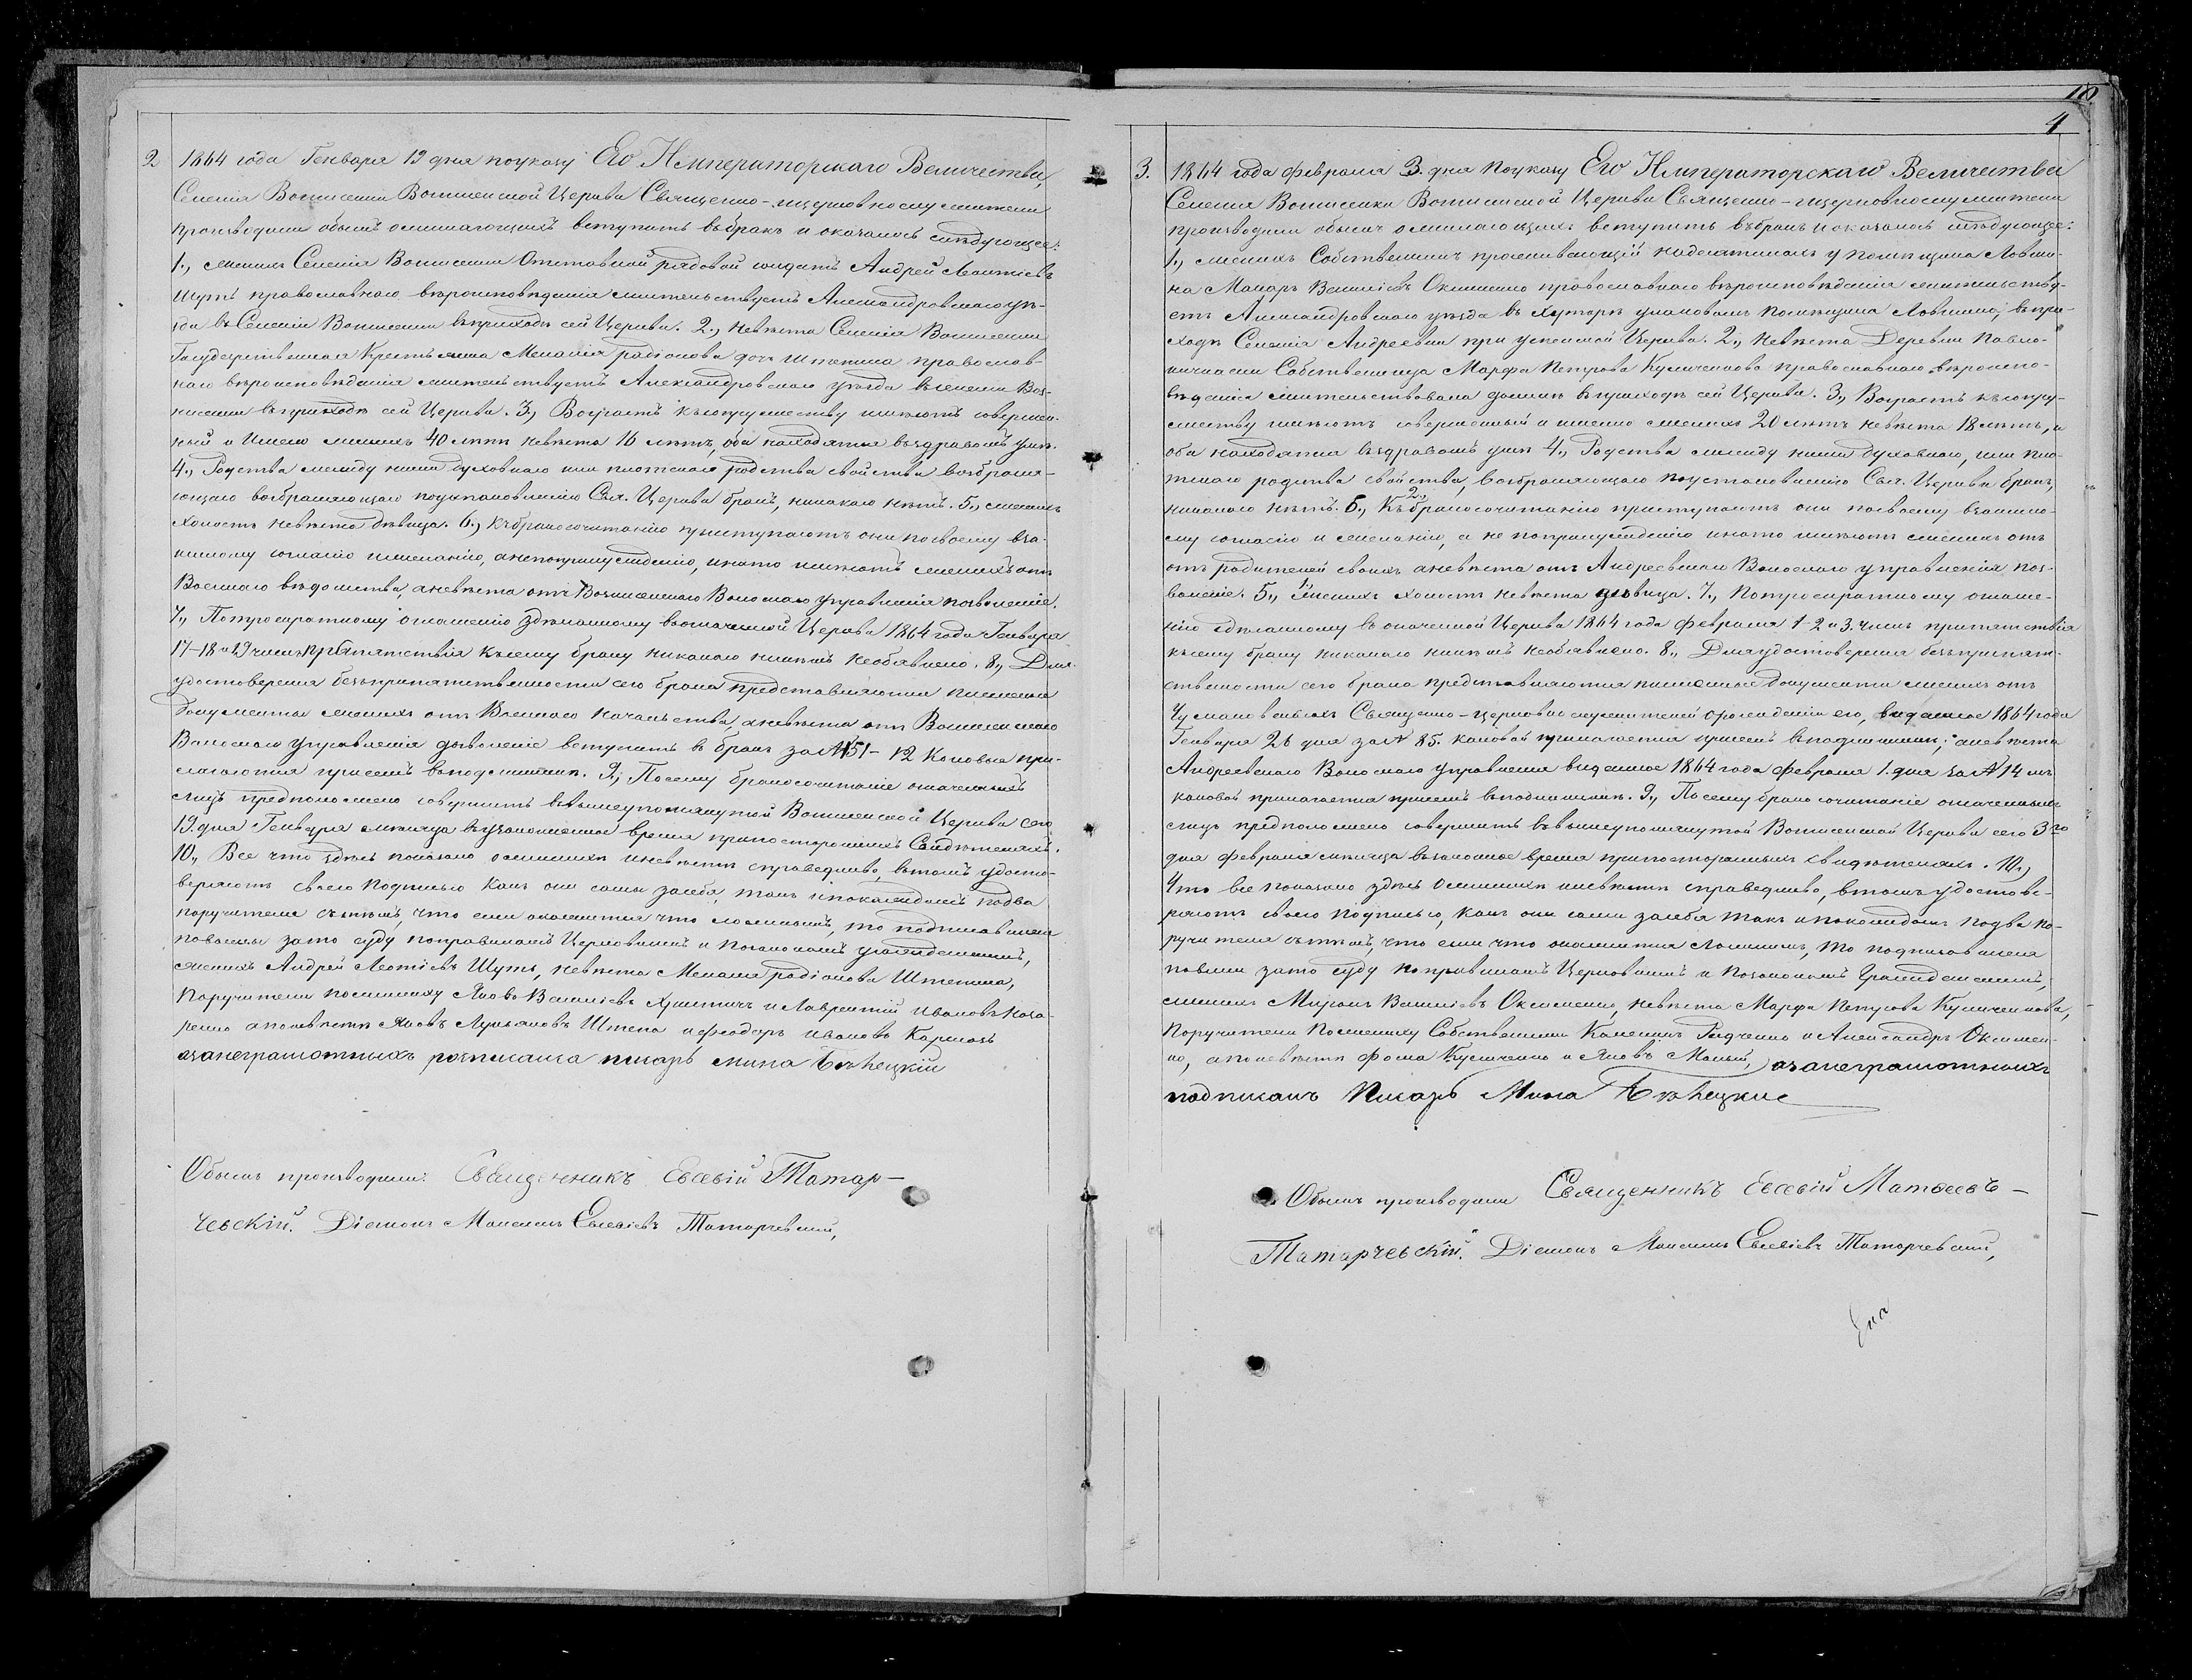 2 1864 года Генваря 19 дня поуказу Его Императорскаго Величества,
Селенiя Вознесенки Вознесенской Церкви Священно-ицерковнослужители
производили обыскъ ожелающихъ вступить вбракъ и оказалось слѣдующее:
1., женихъ Селенiя Вознесенки Отставной рядовой солдатъ Андрей Леонтiевъ
Шутъ православнаго вѣроисповѣданiя жительствуетъ Александровскаго уѣ-
зда въ Селенiи Вознесенки вприходѣ сей Церкви. 2., невѣста Селенiя Вознесенки
Государственная Крестьянка Меланiя Радiонова дочь Штепина православ-
наго вѣроисповѣданiя жительствуетъ Александровскаго уѣзда вселенiи Воз-
несенки вприходѣ сей Церкви. 3., Возрастъ ксупружеству имѣютъ совершен-
ный и имено женихъ 40 лѣтъ невѣста 16 лѣтъ, оба находятся въздравомъ умѣ.
4., Родства между ними духовнаго или плотскаго родства свойства возбраня-
ющаго возбраняющаго поустановленiю Свят. Церкви бракъ, никакаго нѣтъ. 5., женихъ
холостъ невѣста дѣвица. 6., Къбракосочитанiю приступаютъ они посвоему вза-
имному согласiю ижеланiю, анепопринужденiю, инато имѣютъ женихъ отъ
Военнаго вѣдомства, аневѣста отъ Вознесенскаго Волоснаго Управленiя позволенiе.
7., Потроекратному оглашенiю здѣланному возначенной Церкви 1864 года Генваря
17-18 и 19 чиселъ препятствiя ксему браку никакаго никѣмъ необявлено. 8., Для
удостоверенiя безпрепятственности сего брака представляются писменые
Документы женихъ отъ Военнаго Начальства, аневѣста отъ Вознесенскаго
Волоснаго Управленiя дозволенiе вступить в бракъ за № 51-12 Коковые при-
лагаются присемъ вподлинникѣ. 9., Посему бракосочитанiе означенныхъ
лицъ предположено совершить ввышеупомянутой Вознесенской Церкви сего
19. дня Генваря мѣсяца вузаконенное время припостороннихъ Свидѣтеляхъ.
10., Все что здѣсь показано ожениихѣ иневѣстѣ справедливо, втомъ удосто-
веряютъ своею подписью какъ они сами засебя, такъ ипокаждомъ подва
поручителя сътѣмъ, что если окажится что ложнымъ, то подписавшiеся
повинны зато суду поправиламъ Церковнымъ и позаконамъ гражданскимъ,
женихъ Андрей Леотiевъ Шутъ, невѣста Меланiя Радiонова Штепина,
Поручители пожениху Яковъ Василiевъ Хрштичъ и Лаврентiй Ивановъ Каза-
ренко апоневѣсте Яковъ Лукьяновъ Штепа иФеодоръ Ивановъ Карнахъ
азанеграмотныхъ росписался писарь мина Бѣлецкiй
Обыскъ производили: Священникъ Евсевiй Татар-
чевскiй. Дiаконъ Максимъ Евсевiевъ Татарчевскiй,
4
3. 1864 года февраля 3. дня Поуказу Его Императорскаго Величества
Селенiя Вознесенки Вознесенской Церкви Священно-ицерковнослужители
производили обыскъ ожелающихъ вступить вбракъ иоказалось слѣдующее:
1., женихъ Собственникъ проживающiй надесятинахъ у помѣщика Ловши-
на Макаръ Василiевъ Окименко православнаго вѣроисповѣданiя жительству-
етъ Александровскаго уѣзда въ Хуторѣ умановомъ Помѣщика Ловшина, впри-
ходѣ Селенiя Андреевки при успенской Церкви. 2., Невѣста Деревни Павло-
кичкаски Собственница Марфа Петрова Куличенкова православнаго вѣроиспо-
вѣданiя жительствовала донынѣ вприходѣ сей Церкви. 3., Возрастъ ксупру-
жеству имѣютъ совершенный и именно женихъ 20 лѣтъ невѣста 18 лѣтъ, и
оба находятся въздравомъ умѣ 4., Родства между ними духовнаго, или пло-
тскаго родства свойства, возбраняющаго поустановленiю Свят. Церкви бракъ,
никакаго нѣтъ. 6., Къ бракосочитанiю приступаютъ они посвоему взаимно-
му согласiю и желанiю, а не попринужденiю инато имѣютъ женихъ отъ
отъ родителей своихъ аневѣста отъ Андреевскаго Волоснаго управленiя поз-
воленiе. 5., Женихъ холостъ невѣста дѣвица. 7., Потроекратному оглаше-
нiю здѣланному в означенной Церкви 1864 года февраля 1-2 и 3. чиселъ препятствiя
ксему браку никакаго никѣмъ необявлено. 8., Дляудостоверенiя безпрепят-
ствености сего брака представляются писменые документы женихъ отъ
Чумаковскихъ Священно-церковно служителей орожденiи его, виданное 1864 года
Генваря 26 дня за № 85. каковой прилагается присемъ вподлинникѣ; аневѣста
Андреевскаго Волоснаго Управленiя виданное 1864 года февраля 1. дня за № 14 мъ
каковой прилагается присемъ вподлинникѣ. 9., Посему бракосочитанiе означенныхъ
лицъ предположено совершить ввышеупомянутой Вознесенской Церкви сего 3го
дня февраля мѣсяца взаконное время припостороннихъ свидѣтеляхъ. 10.,
Что все показано здѣсь оженихѣ иневѣсте справедливо, втомъ удостове-
ряютъ своею подписью, какъ они сами засебя такъ ипокаждомъ подва по-
ручителя сътѣмъ, что если что окажится ложнымъ, то подписавшiеся
повини зато суду поправиламъ Церковнымъ и позаконамъ Гражданскимъ,
женихъ Миронъ Василiевъ Окименко, невѣста Марфа Петрова Куличенкова,
Поручители Пожениху Собственники Калениκъ Гидченко и Александръ Окимен-
ко, апоневѣстѣ фома Куличенко и Яковъ Малый, азанеграмотныхъ
подписалъ Писарь Мина Бѣлецкие
Обыскъ производили Священникъ Евсевiй Матвеевъ-
Татарчевскiй. Дiаконъ Максимъ Евсевiевъ Татарчевскiй,